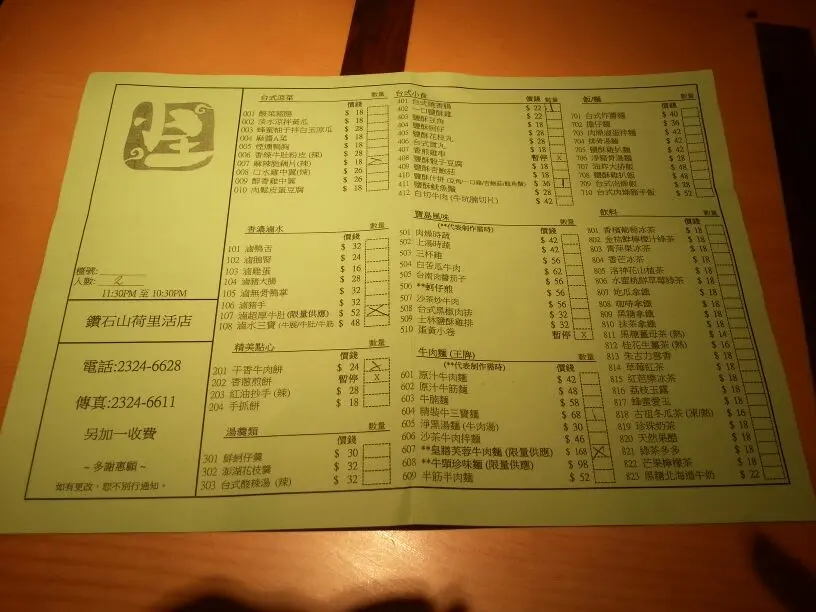 檯號:
人數: 2
11:30PM 至 10:30PM
鑽石山荷里活店
電話:2324-6628
傳真:2324-6611
另加一收費
~ 多謝惠顧 ~
如有更改，恕不別行通知。
台式涼菜 數量
價錢
001 $ 18
002 淡水涼拌黃瓜 $ 18
003 蜂蜜柚子拌白玉涼瓜 $ 28
004 $ 18
005 煙燻鴨胸 $ 28
006 香辣牛肚粉皮 (辣) $ 28
007 麻辣脆鱔片 (辣) $ 18
008 口水雞中翼 (辣) $ 26
009 醉香雞中翼 $ 26
010 肉鬆皮蛋豆腐 $ 18
香濃滷水 數量
價錢
101 滷鴨舌 $ 32
102 滷鵝腎 $ 24
103 滷雞蛋 $ 16
104 滷豬大腸 $ 28
105 滷無骨鴨掌 $ 32
106 滷豬手 $ 32
107 滷超厚牛肚 (限量供應) $ 52
108 滷水三寶 (牛𦟌/牛肚/牛筋) $ 48
精美點心 數量
價錢
201 千香牛肉餅 $ 24
202 香蔥煎餅 暫停 X
203 紅油抄手 (辣) $ 28
204 手抓餅 $ 18
湯羹類 數量
價錢
301 鮮蚵仔羹 $ 30
302 澎湖花枝羹 $ 32
303 台式酸辣湯 (辣) $ 32
台式小食 價錢 數量
401 $ 22
402 一口鹽酥雞 $ 22
403 鹽酥豆角 $ 18
404 $ 18
405 鹽酥花枝丸 $ 28
406 台式貢丸 $ 28
407 香煎雞串 $ 28
408 鹽酥骰子豆腐 暫停 X
409 鹽酥杏鮑菇 $ 18
410 鹽酥什拼 $ 36
411 鹽酥魷魚鬚 $ 36
412 白切牛肉 (牛坑腩切片) $ 42
寶島風味 數量
(**代表制作需時) 價錢
501 肉燥時蔬 $ 42
502 上湯時蔬 $ 42
503 三杯雞 $ 56
504 白苦瓜牛肉 $ 62
505 $ 56
506 **蚵仔煎 $ 56
507 沙茶炒牛肉 $ 56
508 台式黑椒肉排 $ 32
509 士林鹽酥雞排 $ 32
510 蛋黃小卷 暫停 X
牛肉麵 (王牌) 數量
(**代表制作需時) 價錢
601 原汁牛肉麵 $ 42
602 原汁牛筋麵 $ 48
603 牛腩麵 $ 58
604 精裝牛三寶麵 $ 68
605 淨黑湯麵 (牛肉湯) $ 30
606 沙茶牛肉拌麵 $ 46
607 **皇膳芙蓉牛肉麵 (限量供應) $ 168
608 **牛頸珍味麵 (限量供應) $ 98
609 半筋半肉麵 $ 52
飯/麵 數量
價錢
701 台式炸醬麵 $ 40
702 擔仔麵 $ 36
703 肉燥滷蛋拌麵 $ 42
704 排骨湯麵 $ 42
705 鹽酥雞扒麵 $ 42
706 $ 28
707 $ 48
708 鹽酥雞扒飯 $ 48
709 台式滷豚飯 $ 48
710 台式肉燥腸子飯 $ 48
飲料 數量
價錢
801 香檳葡萄冰茶 $ 18
802 金桔鮮檸檬汁綠茶 $ 18
803 青蘋果冰茶 $ 18
804 香芒冰茶 $ 18
805 洛神花山楂茶 $ 18
806 水蜜桃鮮草莓綠茶 $ 18
807 地瓜拿鐵 $ 18
808 咖啡拿鐵 $ 18
809 黑糖拿鐵 $ 18
810 抹茶拿鐵 $ 18
811 黑糖薑母茶 (熱) $ 14
812 桂花生薑茶 (熱) $ 16
813 朱古力雪香 $ 18
814 草莓紅茶 $ 18
815 紅芭樂冰茶 $ 18
816 荔枝玉露 $ 18
817 蜂蜜愛玉 $ 18
818 古祖冬瓜茶 (凍/熱) $ 16
819 珍珠奶茶 $ 18
820 天然果醋 $ 18
821 綠茶多多 $ 18
822 芒果檸檬茶 $ 18
823 黑糖北海道牛奶 $ 22